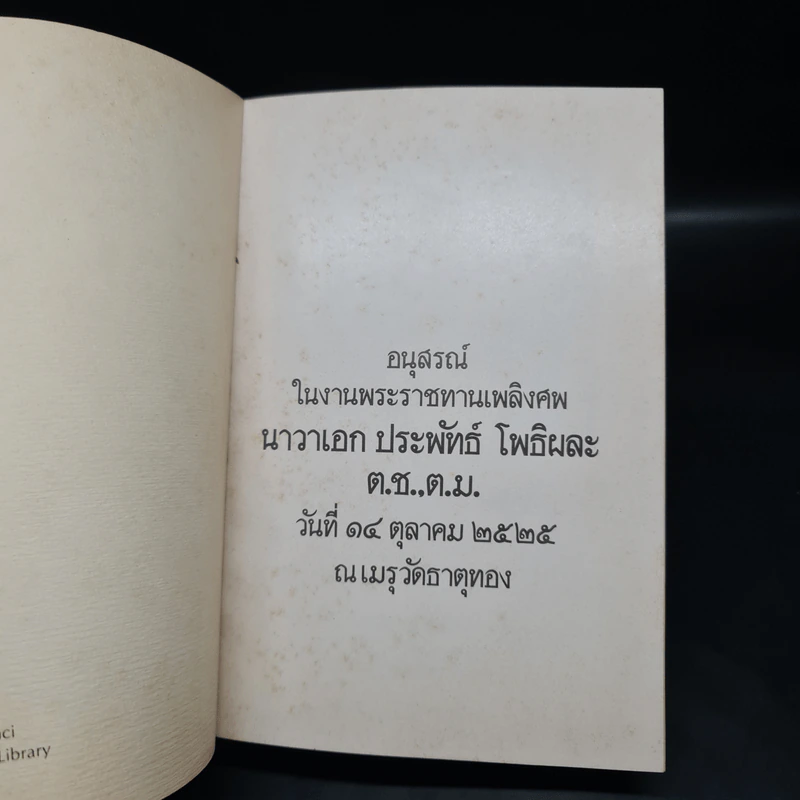 อนุสรณ์
ในงานพระราชทานเพลิงศพ
นาวาเอก ประพัทธ์ โพธิผละ
ต.ช.,ต.ม.
วันที่ ๑๔ ตุลาคม ๒๕๒๕
ณ เมรุวัดธาตุทอง
Library